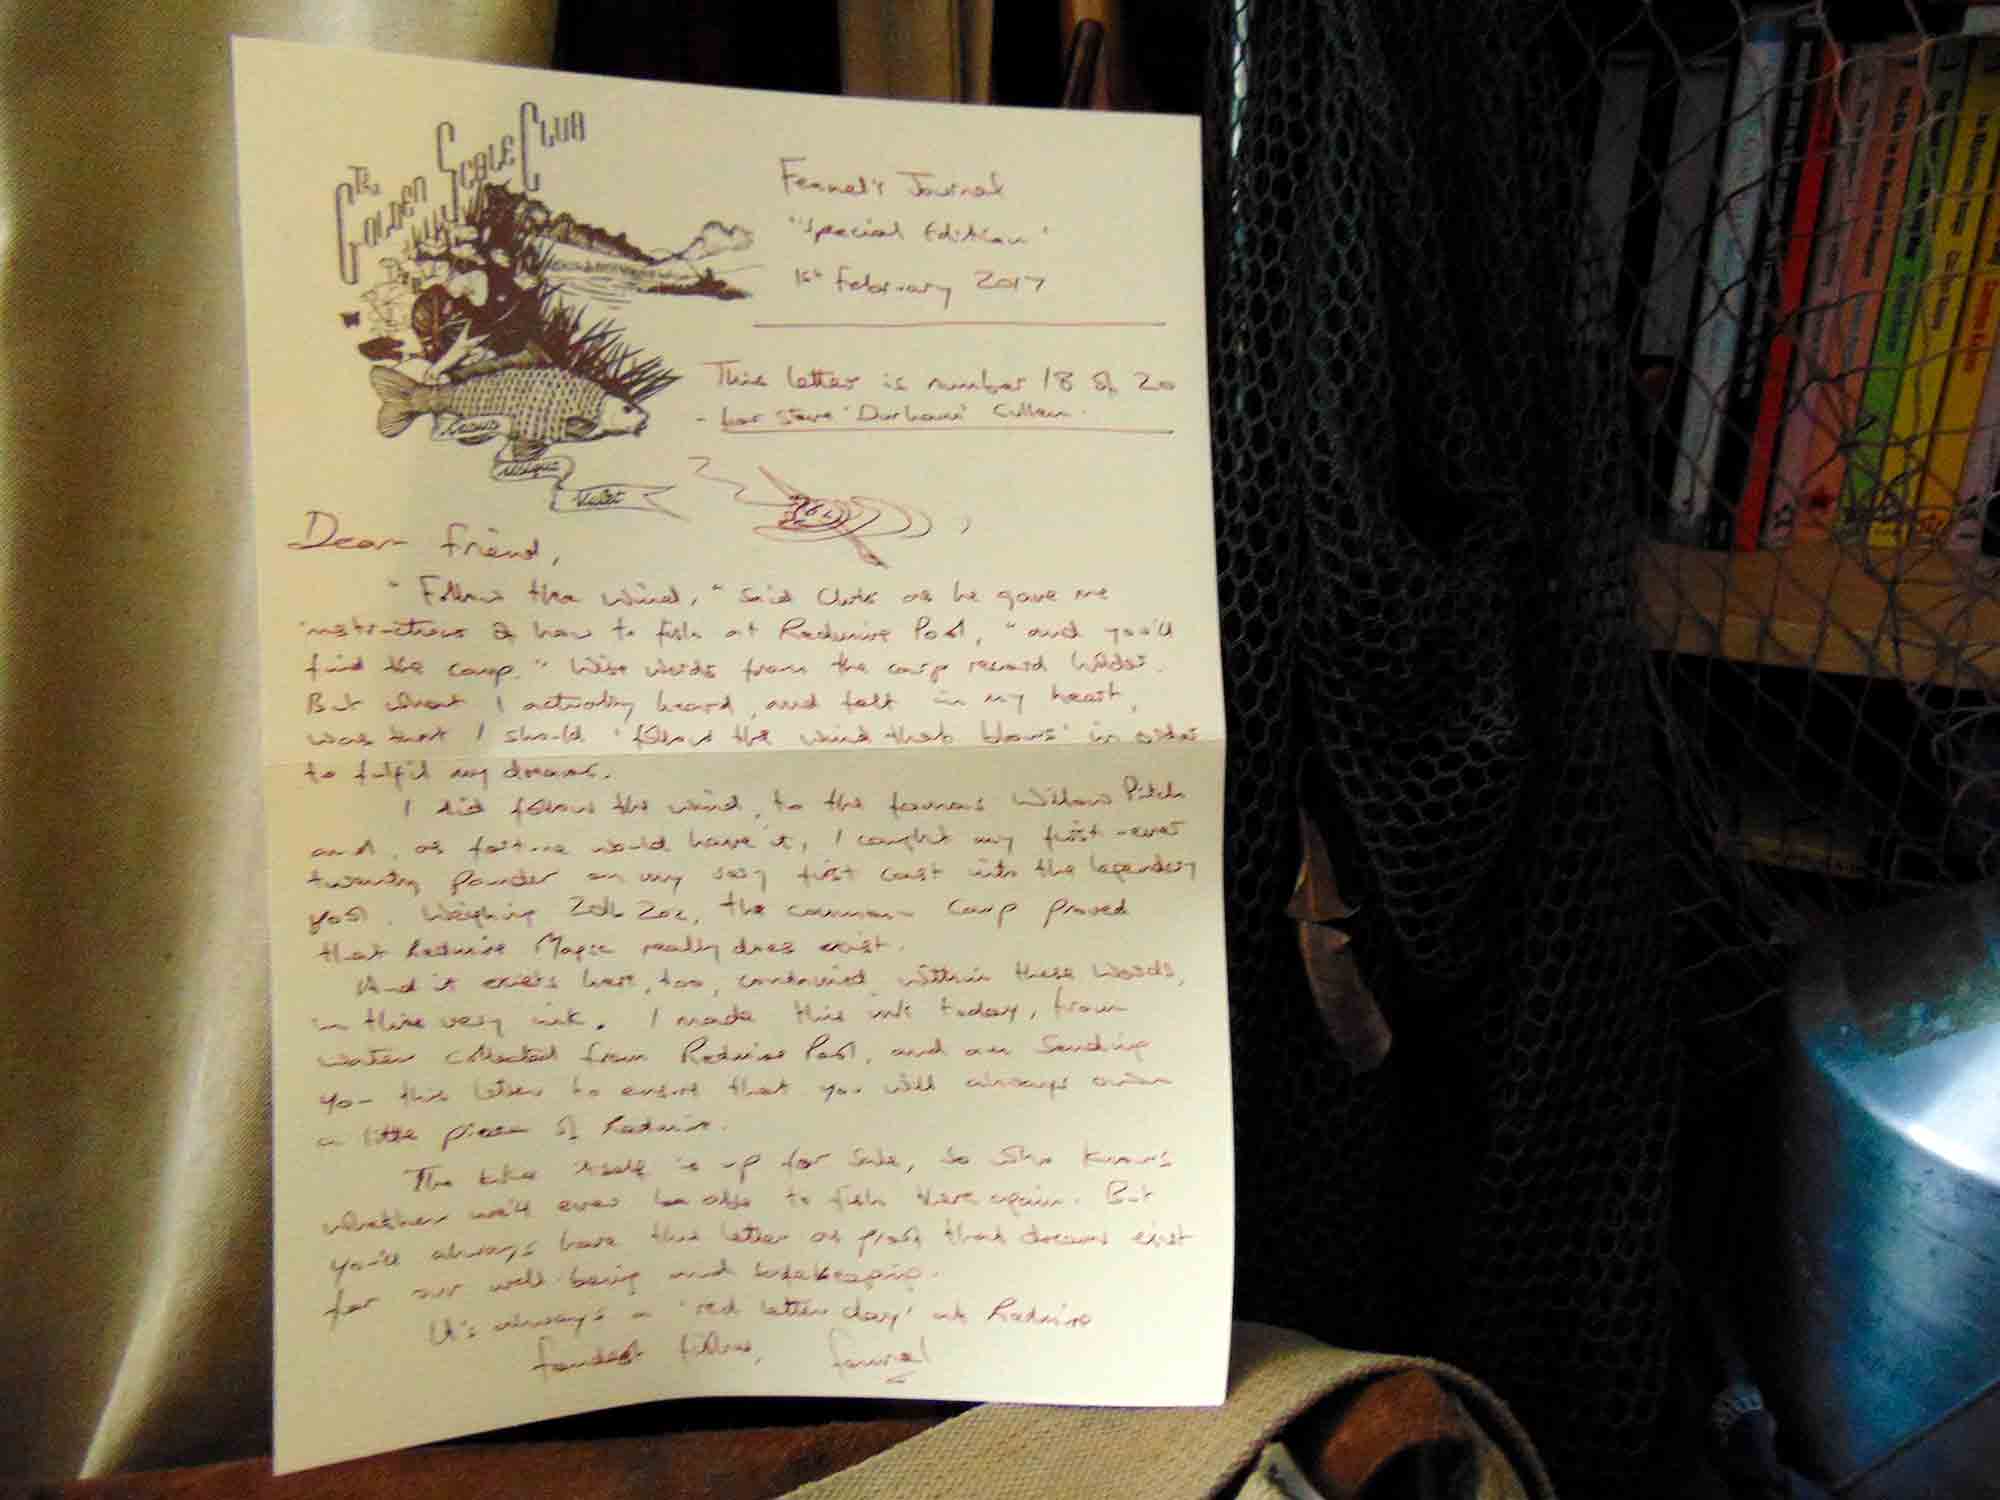 The Golden Scale Club
Fennel's Journal
"Special Edition"
1st February 2017
This letter is number 18 of 20
- for Steve 'Durham' Cullen.
Dear Friend,
"Follow the wind," said Chris as he gave me
instructions of how to fish at Redmire Pool, "and you'll
find the carp." Wise words from the carp record holder.
But what I actually heard, and felt in my heart,
was that I should 'follow the wind that blows' in order
to fulfil my dreams.
I did follow the wind, to the famous Willow Pitch
and, as fortune would have it, I caught my first-ever
twenty pounder on my very first cast into the legendary
pool. Weighing 20lb 2oz, the common carp proved
that Redmire Magic really does exist.
And it exists here, too, contained within these words,
in this very ink. I made this ink today, from
water collected from Redmire Pool, and am sending
you this letter to ensure that you will always own
a little piece of Redmire.
The lake itself is up for sale, so who knows
whether we'll ever be able to fish there again. But
you'll always have this letter as proof that dreams exist
for our well-being and safekeeping.
It's always a 'red letter day' at Redmire
Fennel